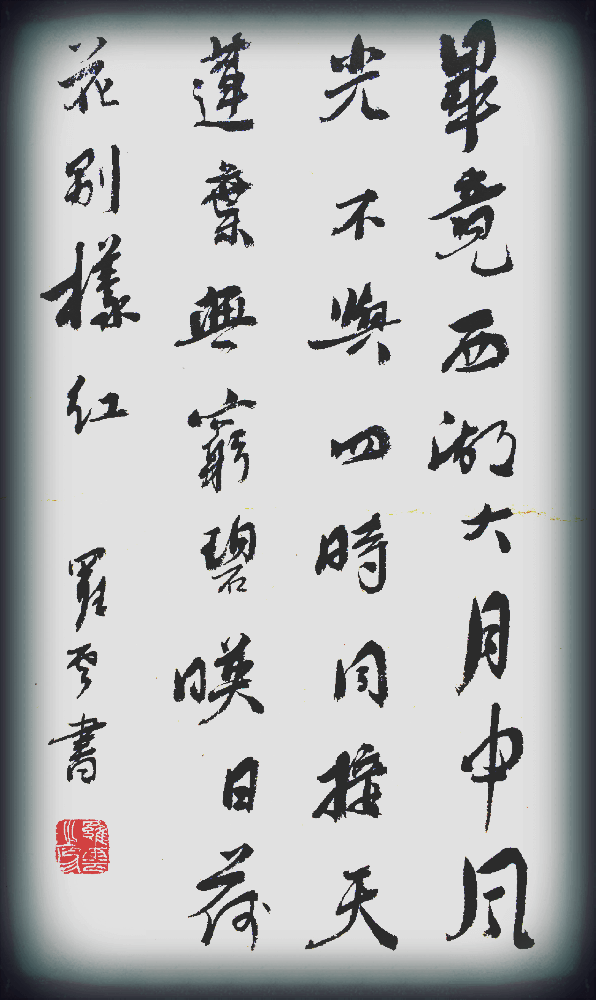 畢竟西湖六月中風
光不與四時同接天
蓮葉無窮碧映日荷
花別樣紅 羅雲書